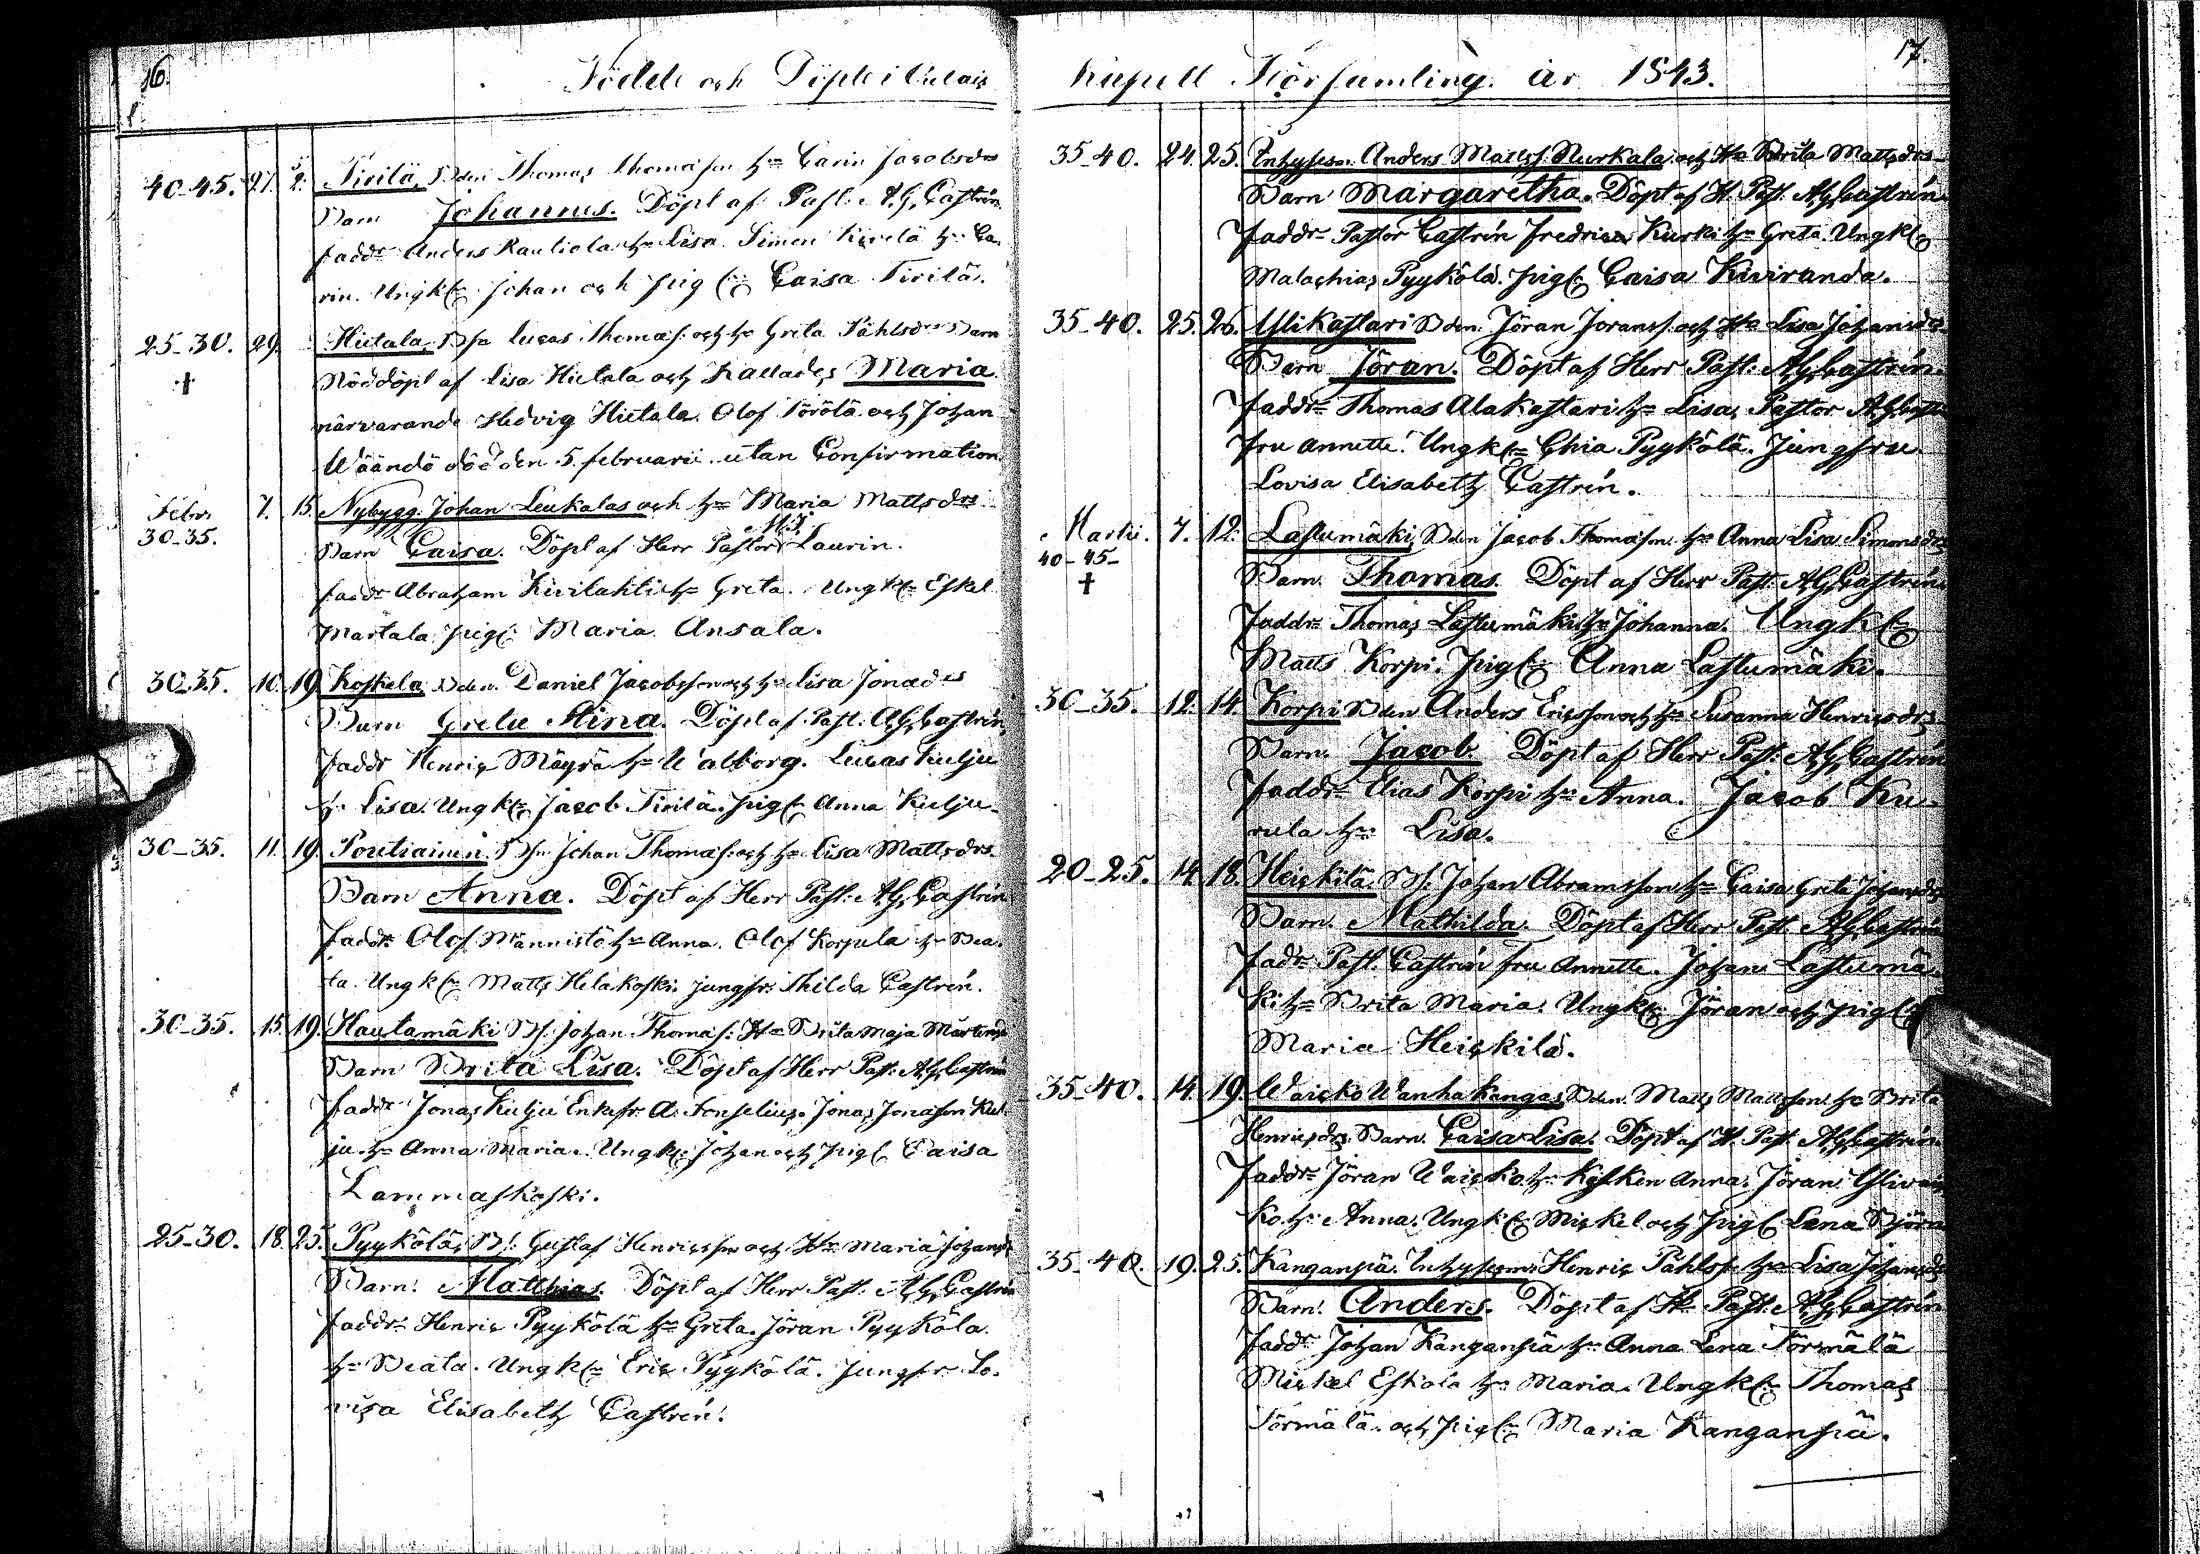 16.
Födde och Döpte i Pulais
40-45. 27. 2. Tirilä, Bden Thomas Thomasson hu Carin Jacobsdr
Barn Johannes. Döpt af Past. A.G. Castrén.
faddr Anders Rautiola hu Lisa. Simon hu Ca-
rin. Ungk Johan och pig Caisa Tirilä.
25-30. 29. Hietala, Bs Lucas Thomas. och hu Greta Påhlsdr Barn
† Nöddöpt af Lisa Hietala och kallades Maria
närvarande Hedvig Hietala. Olof Törölä och Johan
Wäändö död den 5. februarii utan Confirmation
Febr 7. 15. Nybygg. Johan Leukalas och hu Maria Mattsdr
30-35. Barn Caisa. Döpt af Herr Pastor Laurin.
faddr Abraham Kivilahti hu Greta. Ungk Eskel
Martala pig Maria Ansala.
30-35. 10. 19. Koskela Bden Daniel Jacobsson och hu Lisa Jonadr
Barn Greta Stina. Döpt af Past: A.G. Castrén
faddr Henric Mäyrä hu Walborg. Lucas Kulju
hu Lisa. Ungk Jacob Tirilä. pig Anna Kulju.
30-35. 11. 19. Poutiainen. Bs Johan Thomas: och hu Lisa Mattsdr.
Barn Anna. Döpt af Herr Past: A.G. Castrén
faddr Olof Männistö hu Anna. Olof Korpula hu Bea-
ta. Ungk Matts Heläkoski jungfr. Thilda Castrén.
30-35. 15. 19. Hautamäki Bs. Johan Thomas: Hu Brita Maja Mårtensd
Barn Brita Lisa. Döpt af Herr Past: A.G. Castrén
faddr Jonas Kulju Enkefr. A. Fonselius. Jonas Jonasson Kul-
ju hu Anna Maria. Ungk Johan och pig Caisa
Lammaskoski.
25-30. 18. 25. Pyykölä, Bs: Gustaf Henricsson och Hu Maria Johansd
Barn. Matthias. Döpt af Herr Past: A.G. Castrén
faddr Henric Pyykölä hu Greta. Jöran Pyykölä.
hu Beata. Ungk Eric Pyykölä. Jungfr Lo-
visa Elisabeth Castrén.
17.
Kapell Församling. år 1843.
35-40. 24. 25. Inhyses. Anders Mattss. Nurkala och Hu Brita Mattsdr
Barn Margaretha. Döpt af H. Past. A.G. Castrén
Faddr Pastor Castrén Fredrica Kurki hu Greta. Ungk
Malachias Pyykölä. pig Caisa Kiviranda.
35-40. 25. 26. Ylikastari Bden Jöran Jöranss. och Hu Lisa Johansdr
Barn Jöran. Döpt af Herr Past: A.G. Castrén.
Faddr Thomas Alakastari hu Lisa, Pastor A.G. Castr
fru Annette. Ungk Chia Pyykölä. Jungfru
Lovisa Elisabeth Castrén.
Martii. 7. 12. Lastumäki, Bden Jacob Thomasson hu Anna Lisa Simonsdr
40-45- Barn. Thomas. Döpt af Herr Past: A.G. Castrén
† Faddr Thomas Lastumäki hu Johanna. Ungk
Matts Korpi. pig Anna Lastumäki.
30-35. 12. 14. Korpi Bden Anders Ericsson och hu Susanna Henricsdr
Barn. Jacob Döpt af Herr Past: A.G. Castrén
Faddr Elias Korpi hu Anna. Jacob Ku-
rula hu Lisa.
20-25. 14. 18. Heickilä. Bs. Johan Abramsson hu Caisa Greta Johansdr
Barn. Mathilda. Döpt af Herr Past. A.G. Castrén
Fadr Past. Castrén fru Annette. Johan Lastumä-
ki hu Brita Maria. Ungk Jöran och pig
Maria Heickilä.
35-40. 14. 19. Waicko Wanhakangas Bden. Matts Mattsson hu Brita
Henricsdr. Barn. Caisa Lisa. Döpt af H. Past. A.G. Castrén
Faddr Jöran Waicko hu Anna. Jöran Ylivai-
ko hu Anna. Ungk Mickel och pig Lena Björn
35-40. 19. 25. Kanganpiä. Inhyses Henric Påhlss. hu Lisa Johansd
Barn. Anders. Döpt af H. Past. A.G. Castrén
faddr Johan Kanganpiä hu Anna Lena Törmälä
Mickel Eskola hu Maria. Ungk Thomas
Törmälä. och pig Maria Kanganpiä.